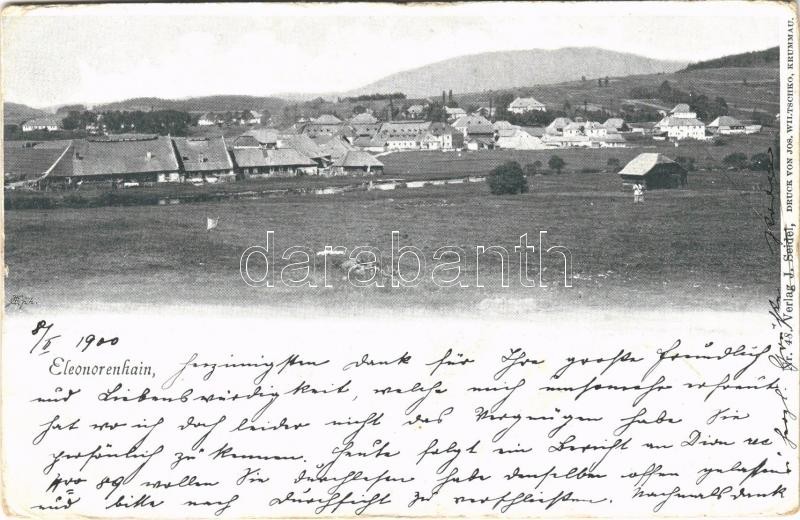 darabanth
Nr. 48, Verlag J. Seidel, DRUCK VON JOS. WILTSCHKO, KRUMMAU.
8/X 1900
Eleonorenhain, herzinnigsten Dank für Ihre große Freundlich
und Liebenswürdigkeit, welche mich umsomehr erfreut
hat wo ich doch leider nicht das Vergnügen habe Sie
persönlich zu kennen. Heute folgt ein Bericht an Dion
89 wollen Sie durchlesen habe denselben offen gelassen
und bitte nach Durchsicht zu verschließen. Nochmals Dank
herzl. Grüße